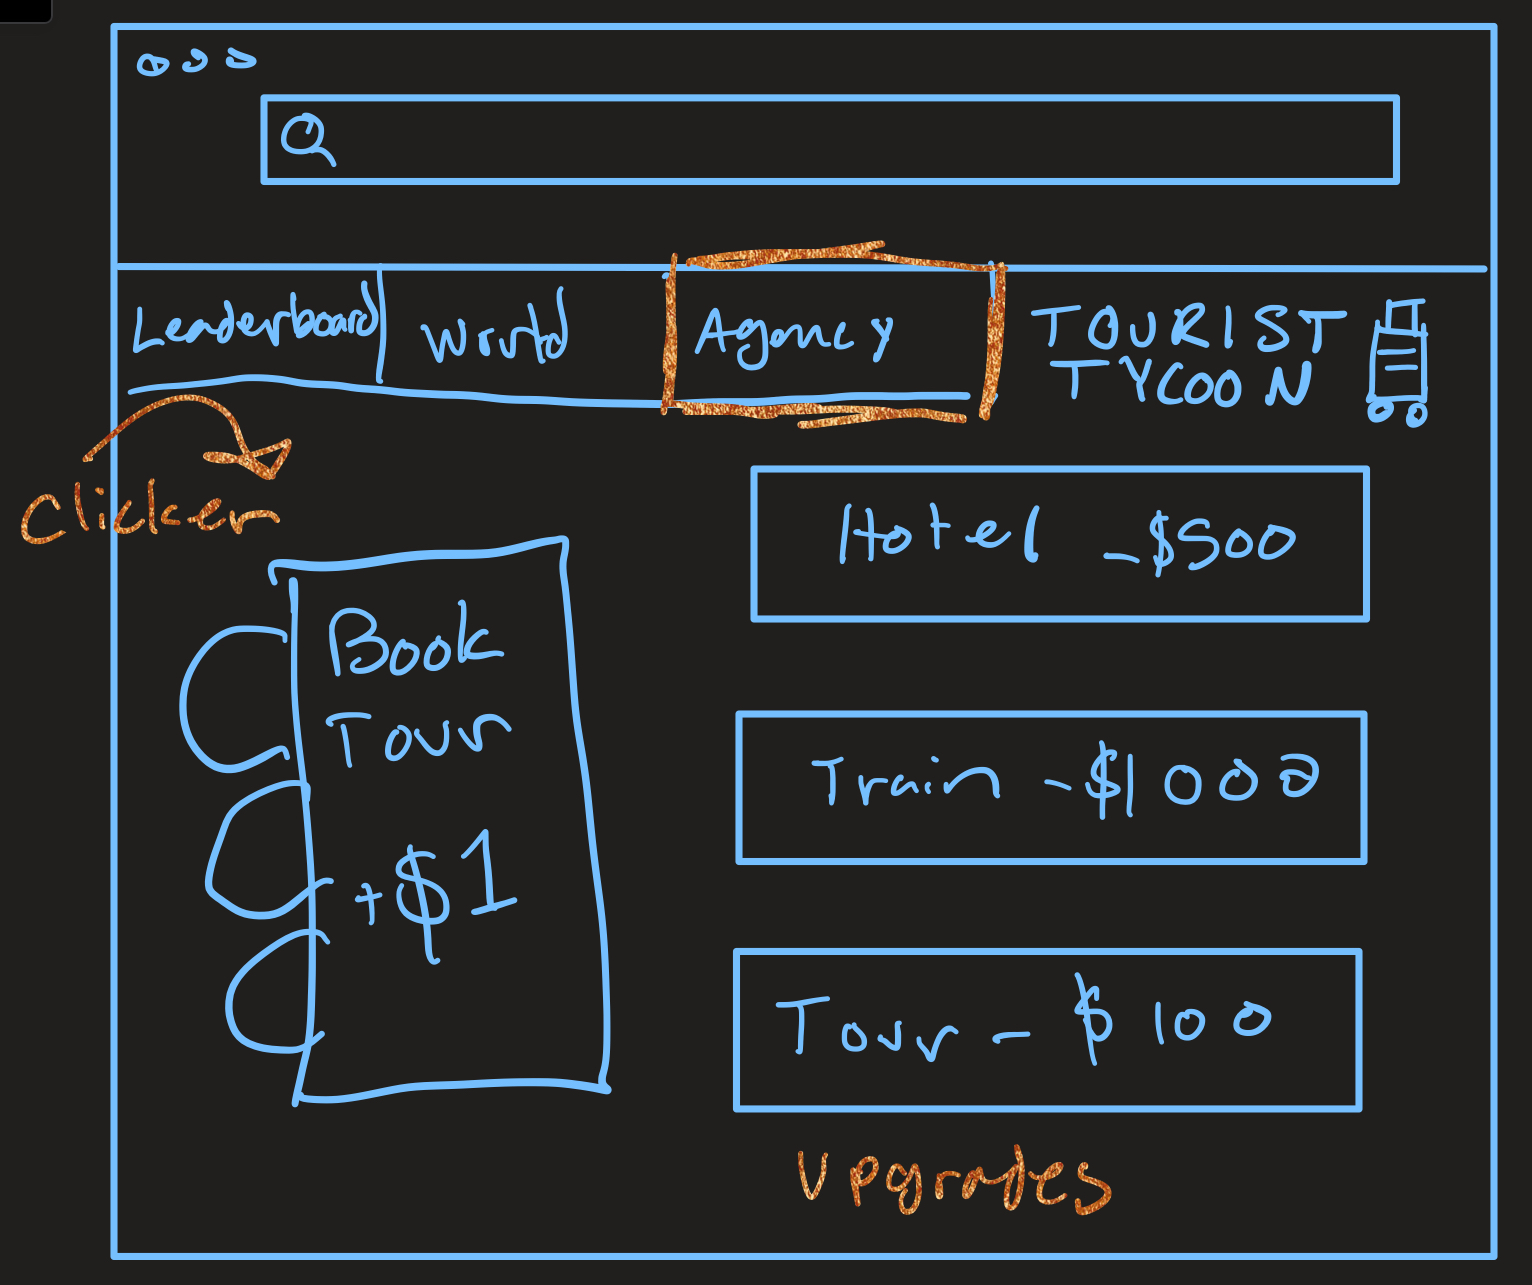 Leaderboard
World
Agency
TOURIST
TYCOON
Clicker
Book
Tour
+$1
Hotel - $500
Train - $1000
Tour - $100
Upgrades